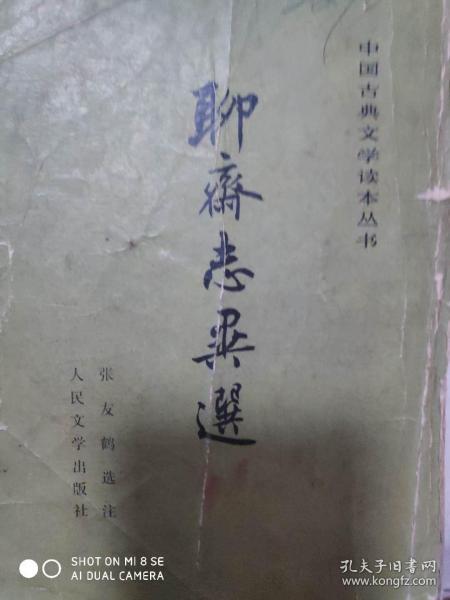 中国古典文学读本丛书
聊齋志異選
张友鹤选注
人民文学出版社
SHOT ON MI 8 SE
AI DUAL CAMERA
孔夫子旧书网
www.kongfz.com